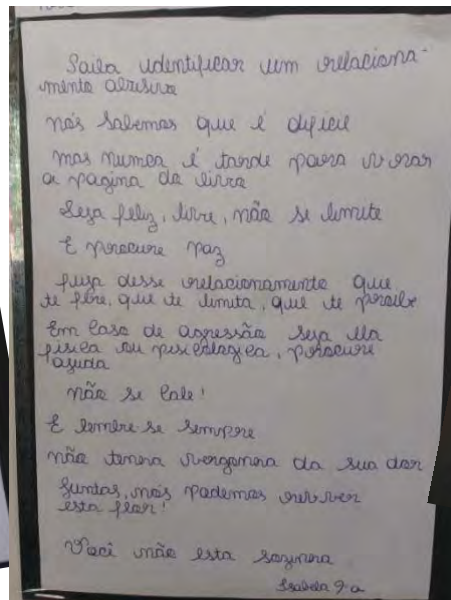 Saiba identificar um relaciona-
mento abusivo
nós sabemos que é dificil
mas nunca é tarde para virar
a pagina do livro
Seja feliz, livre, não se limite
E procure paz
fuja desse relacionamento que
te fere, que te limita, que te proibe
Em caso de agressão seja ela
física ou psicologica, procure
ajuda
não se cale!
E lembre-se sempre
não tenha vergonha da sua dor
Juntas, nós podemos reviver
esta flor!
Você não esta sozinha
Isabela 9º a